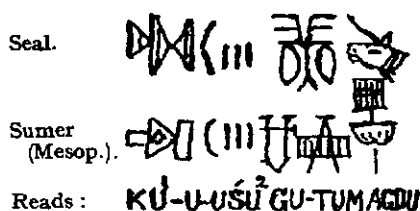 Seal.
Sumer
(Mesop.).
Reads : KU¹-U-UŚU² GU-TUM AGDU